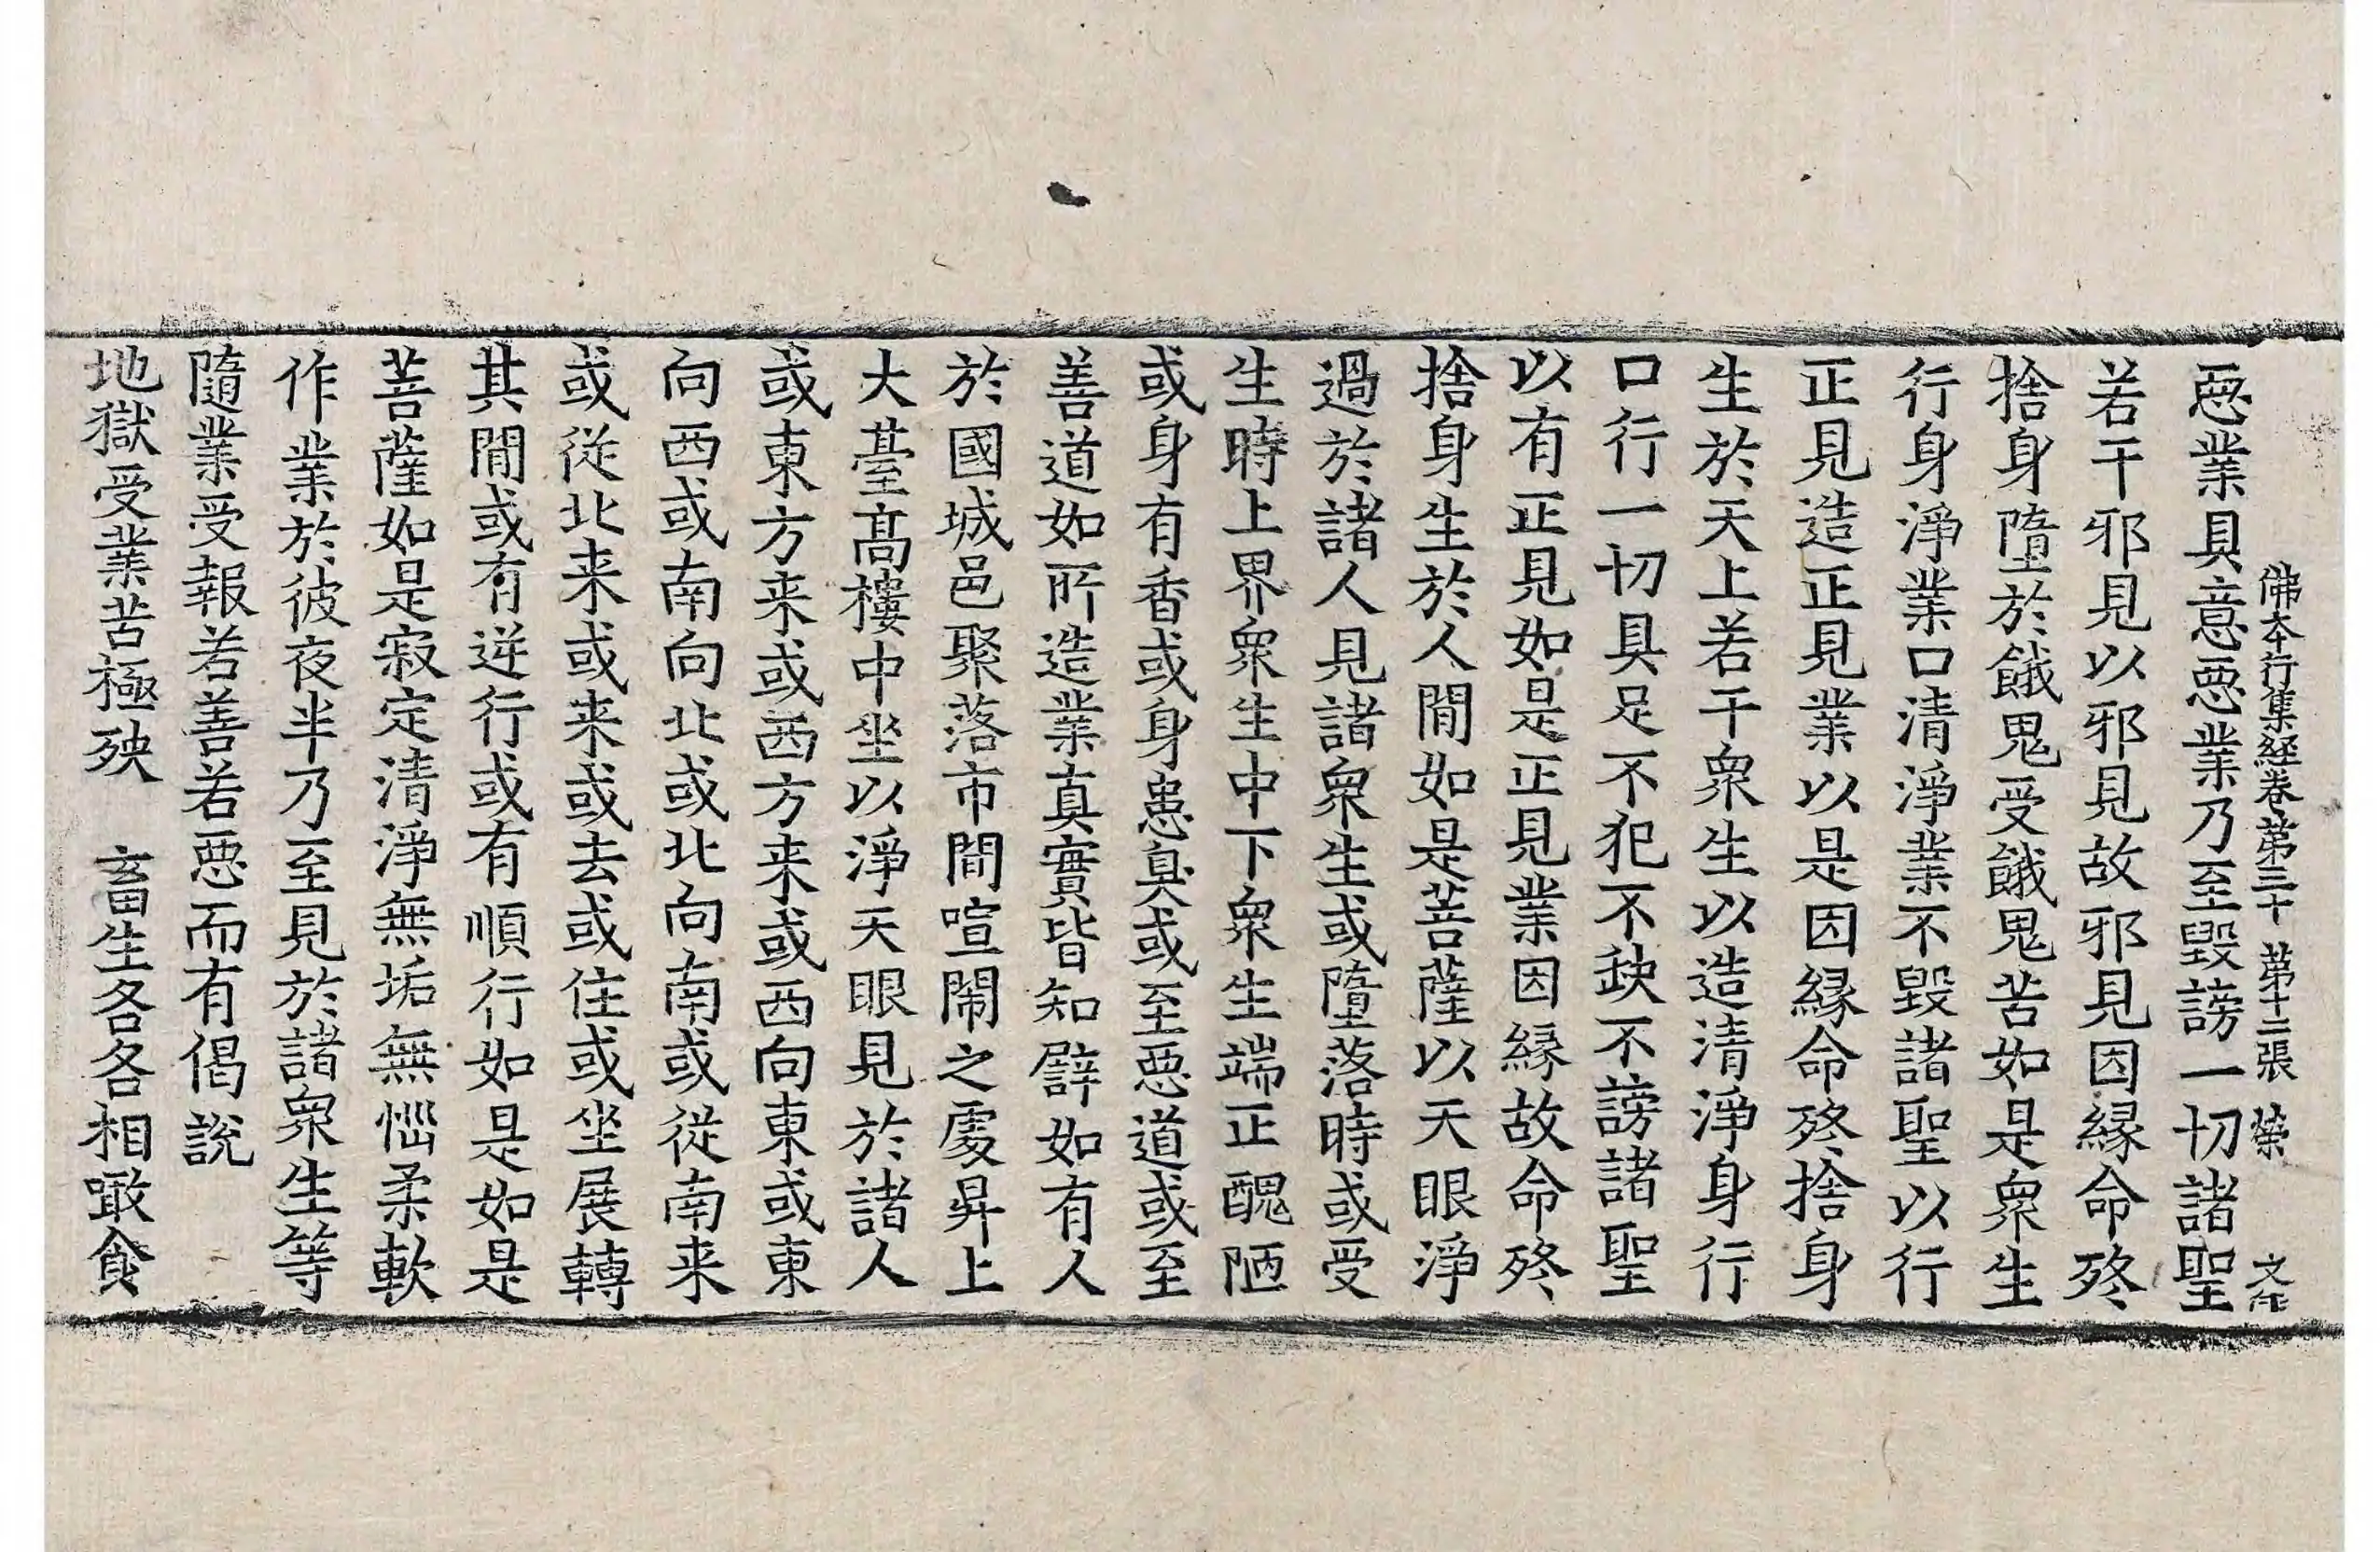 佛本行集経卷第三十 第十二張 榮 文作
惡業具意惡業乃至毀謗一切諸聖
若干邪見以邪見故邪見因縁命終
捨身墮於餓鬼受餓鬼苦如是衆生
行身淨業口清淨業不毀諸聖以行
正見造正見業以是因縁命終捨身
生於天上若干衆生以造清淨身行
口行一切具足不犯不缺不謗諸聖
以有正見如是正見業因縁故命終
捨身生於人間如是菩薩以天眼淨
過於諸人見諸衆生或墮落時或受
生時上界衆生中下衆生端正醜陋
或身有香或身患臭或至惡道或至
善道如所造業真實皆知譬如有人
於國城邑聚落市間喧鬧之處昇上
大臺髙樓中坐以淨天眼見於諸人
或東方来或西方来或西向東或東
向西或南向北或北向南或従南来
或従北来或来或去或住或坐展轉
其間或有逆行或有順行如是如是
菩薩如是寂定清淨無垢無惱柔軟
作業於彼夜半乃至見於諸衆生等
隨業受報若善若惡而有偈說
地獄受業苦極殃 畜生各各相噉食